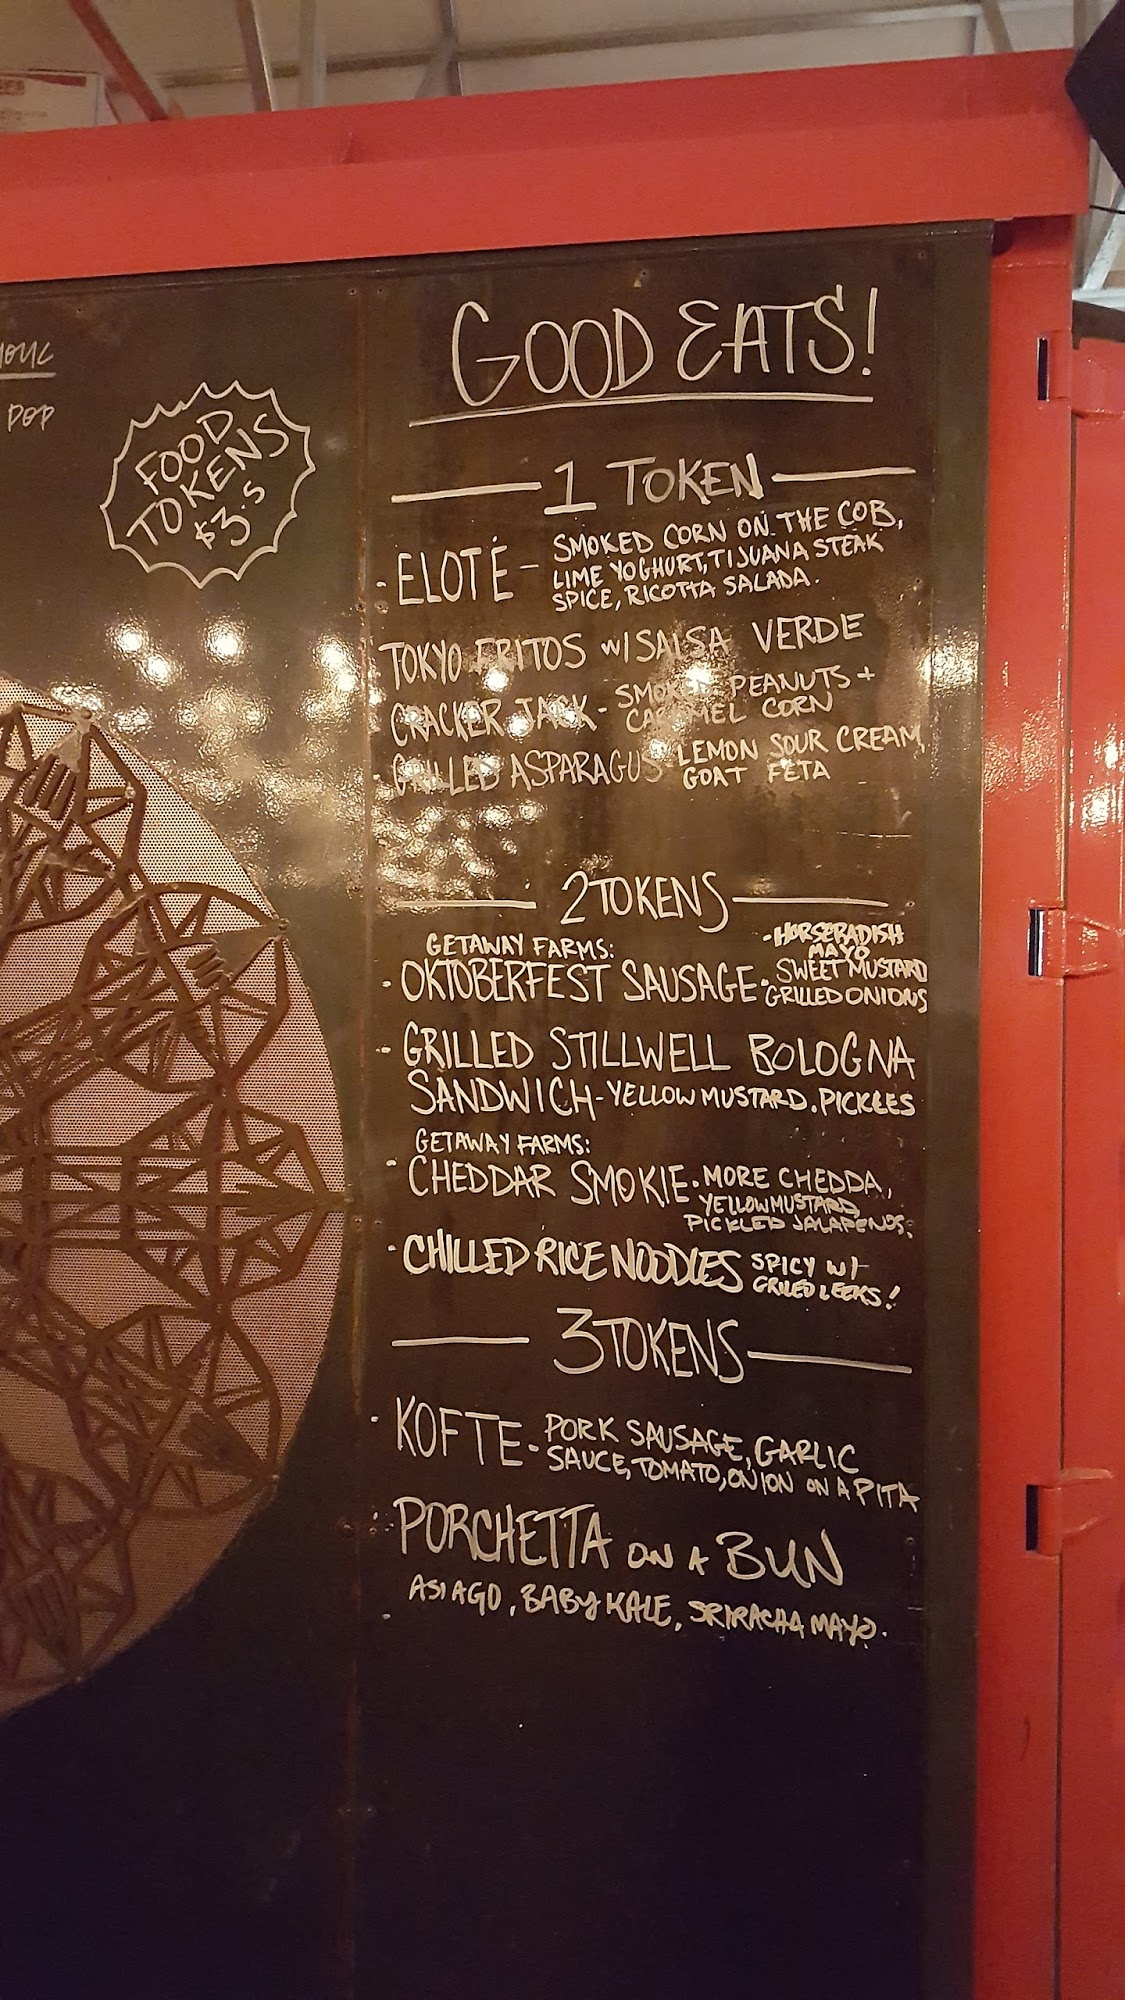 POP
FOOD
TOKENS
$3.5
GOOD EATS!
1 TOKEN
· ELOTÉ - SMOKED CORN ON THE COB,
LIME YOGHURT, TIJUANA STEAK
SPICE, RICOTTA SALADA.
TOKYO FRITOS W/ SALSA VERDE
CRACKER JACK - SMOKED PEANUTS +
CARAMEL CORN
· GRILLED ASPARAGUS - LEMON SOUR CREAM,
GOAT FETA
2 TOKENS
GETAWAY FARMS:
· OKTOBERFEST SAUSAGE · HORSERADISH
MAYO
SWEET MUSTARD
GRILLED ONIONS
· GRILLED STILLWELL BOLOGNA
SANDWICH - YELLOW MUSTARD, PICKLES
GETAWAY FARMS:
· CHEDDAR SMOKIE · MORE CHEDDA,
YELLOW MUSTARD,
PICKLED JALAPENOS.
· CHILLED RICE NOODLES SPICY W/
GRILLED LEEKS!
3 TOKENS
· KOFTE - PORK SAUSAGE, GARLIC
SAUCE, TOMATO, ONION ON A PITA
· PORCHETTA ON A BUN
ASIAGO, BABY KALE, SRIRACHA MAYO.